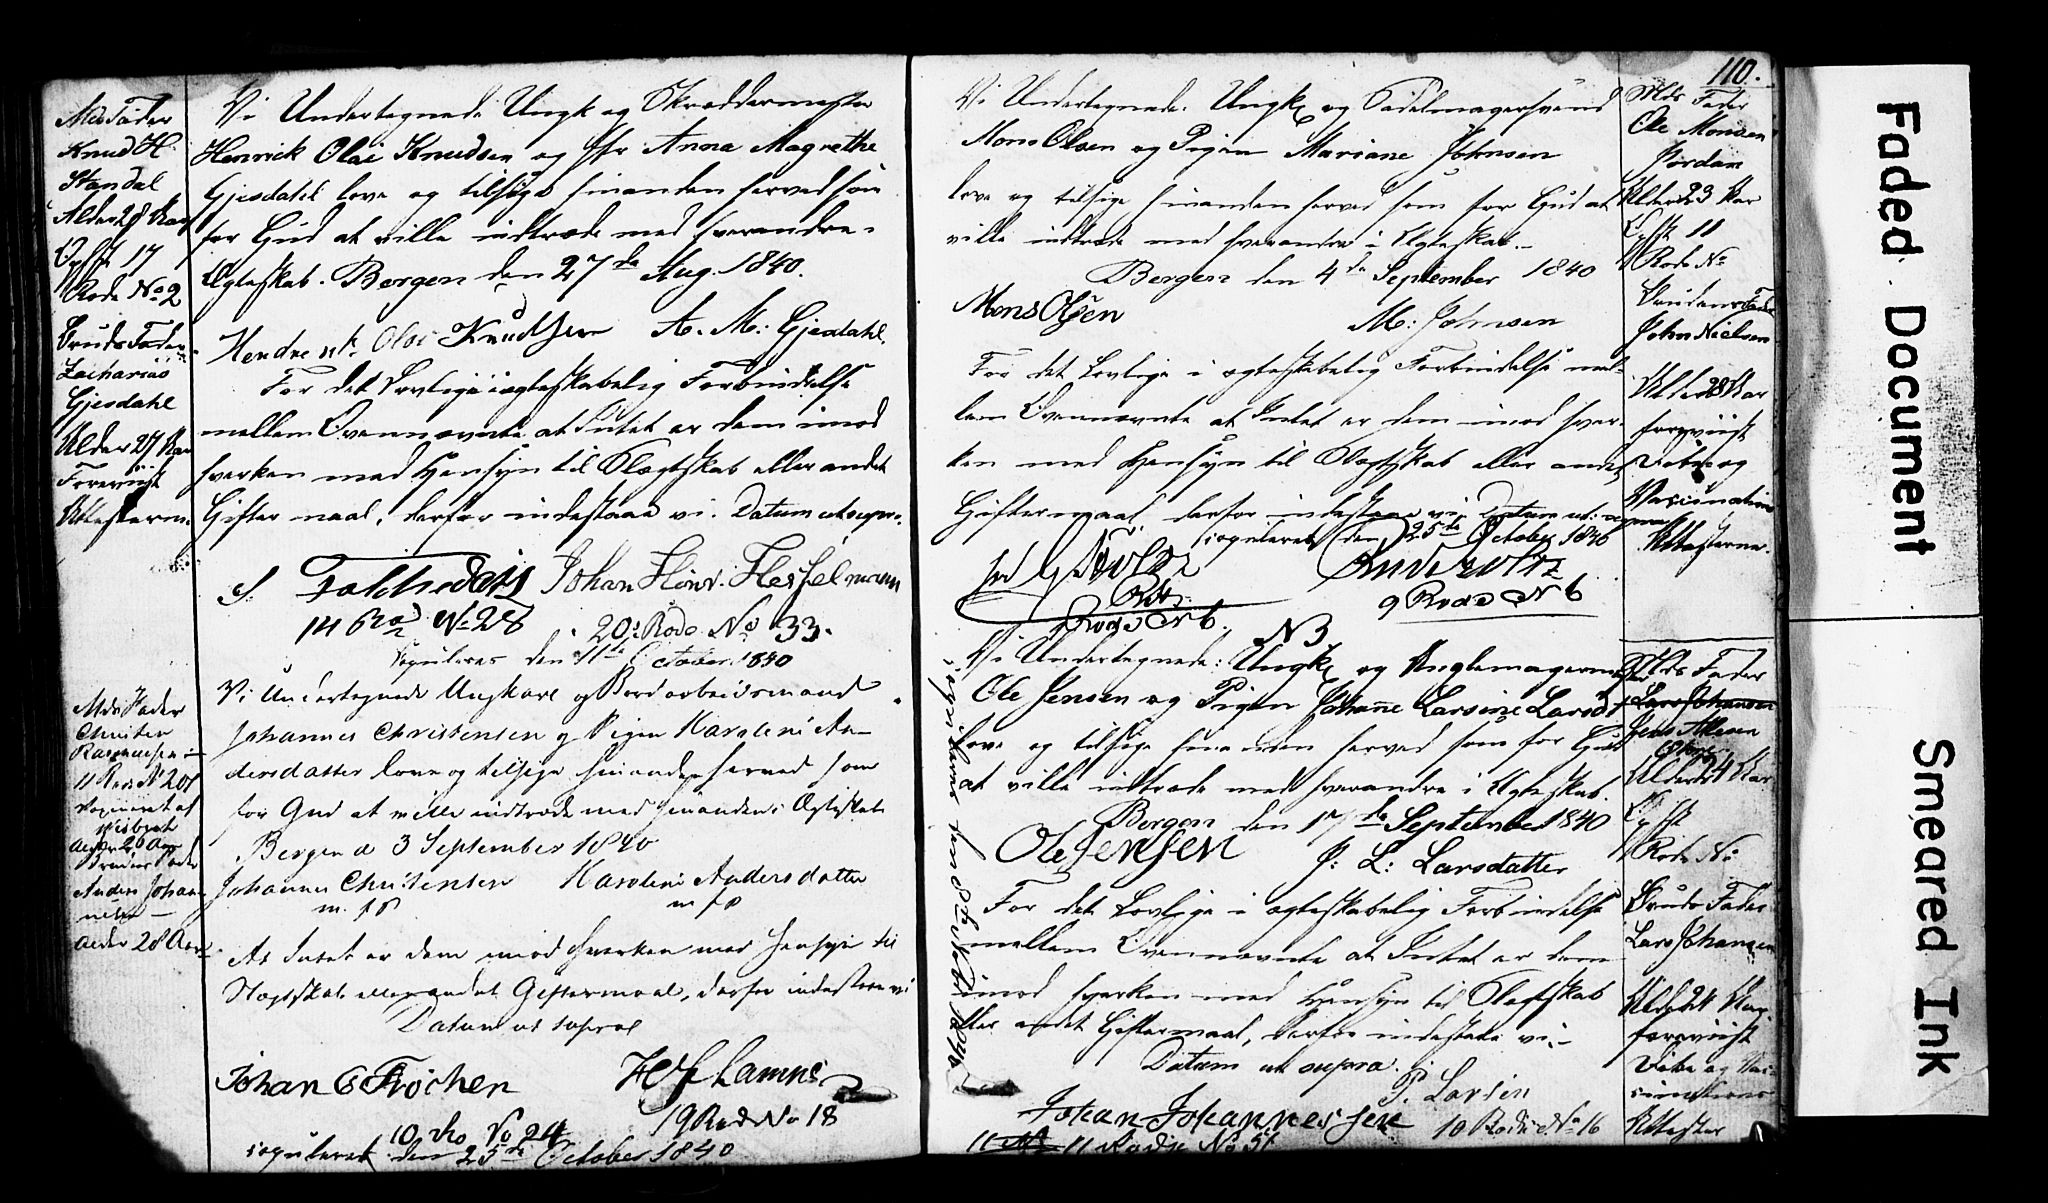 Mds Fader
Knud H
Standal
Alder 28 Aar
17
Rode No 2
Bruds Fader
Zacharias
Gjesdahl
Alder 27 Aar
Foreviist
Attesterne
Vi Undertegnede Ungk og Skræddermester
Henrick Olai Knudsen og Anna Magrethe
Gjesdahl love og tilsige hinanden herved som
for Gud at ville indtræde med hverandre i
Ægteskab. Bergen den 27de Aug. 1840.
Hendrenk Olai Knudsen A. M: Gjesdahl.
For det Lovlige i ægteskabelig Forbindelse
mellem Ovennævnte at Intet er dem imod
hverken med Hensyn til Slægtskab eller andet
Giftermaal, derfor indestaae vi. Datum ut supra.
Johan Hinr: Hesselmann
14 Rod No 28 20: Rode No 33.
Copuleret den 11te October 1840
Mds Fader
Christen
Rasmussen
11 Rode No 201
Vaccineret af
Wisbech
Alder 26 Aar
Brudens Fader
Anders Johan-
nesen
Alder 28 Aar
Vi Undertegnede Ungkarl og Bordarbeidsmand
Johannes Christensen og Pigen Karoline An-
dersdatter love og tilsige hinanden herved som
for Gud at ville indtræde med hinanden i Ægteskab
Bergen d 3 September 1840
Johannes Christensen Karoline Andersdatter
m. f. P m f P
At Intet er dem imod hverken med Hensyn til
Slægtskab eller andet Giftermaal, derfor indestaae vi
Datum ut supra
Johan C Fröchen H J Lamns
10 Ro No 24 19 Rode No 18
copuleret den 25de October 1840
110.
Vi Undertegnede: Ungk og Sadelmagersvend
Mons Olsen og Pigen Mariane Johnsen
love og tilsige hinanden herved som for Gud at
ville indtræde med hverandre i Ægteskab.-
Bergen den 4de September 1840
Mons Olsen M: Johnsen
For det Lovlige i ægteskabelig Forbindelse mel-
lem Ovennævnte at Intet er dem imod hver-
ken med Hensyn til Slægtskab eller andet
Giftermaal, derfor indestaae vi. Datum ut supra
copuleret den 25de October 1840
Rode No 6. 9 Rode No 6
Mds Fader
Ole Monsen
Jordan
Alder 23 Aar
11
Rode No
Brudens Fader
John Nielsen
Alder 28 Aar
foreviist
Døbe og
Vaccinations
Attesterne.
N 3
Vi Undertegnede: Ungk og
Ole Jensen og Pigen Johanne Larsine Larsdt
love og tilsige hinanden herved som for Gud
at ville indtræde med hverandre i Ægteskab.
Bergen den 17de September 1840
Ole Jensen J: L: Larsdatter
For det Lovlige i ægteskabelig Forbindelse
mellem Ovennævnte at Intet er dem
imod hverken med Hensyn til Slægtskab
eller andet Giftermaal, derfor indestaae vi.-
Datum ut supra.
P. Larsen
Johan Johannessen 10 Rode No 16
11 Rode No 51
copuleret den 8de Novbr 1840
Mds Fader
Lars Johansen
Jens
Alder 24 Aar
Rode No
Bruds Fader
Lars Johansen
Alder 24 Aar
foreviist
Døbe og Vac-
cinations
Attester
Faded Document
Smeared Ink